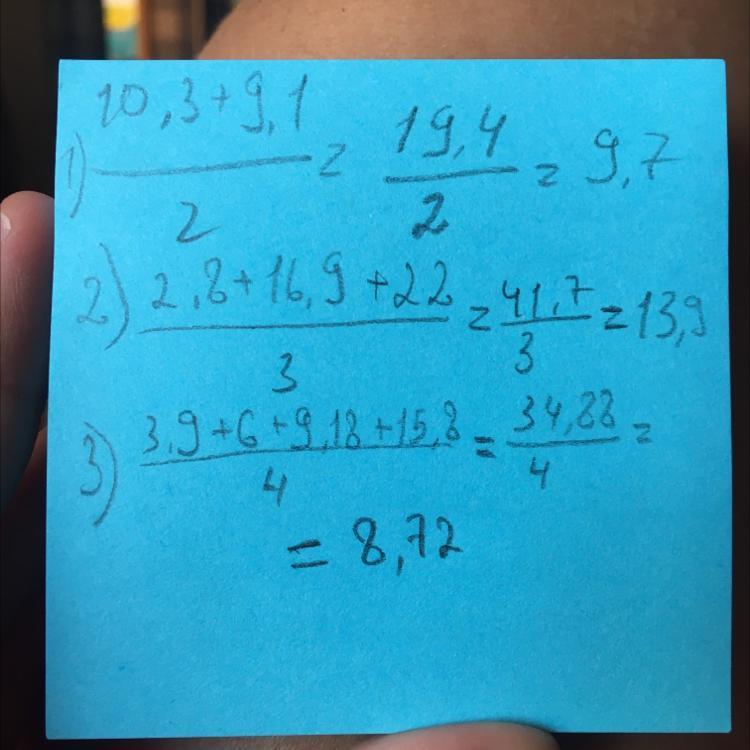 1) (10,3+9,1)/2 = 19,4/2 = 9,7
2) (2,8+16,9+22)/3 = 41,7/3 = 13,9
3) (3,9+6+9,18+15,8)/4 = 34,88/4 =
= 8,72